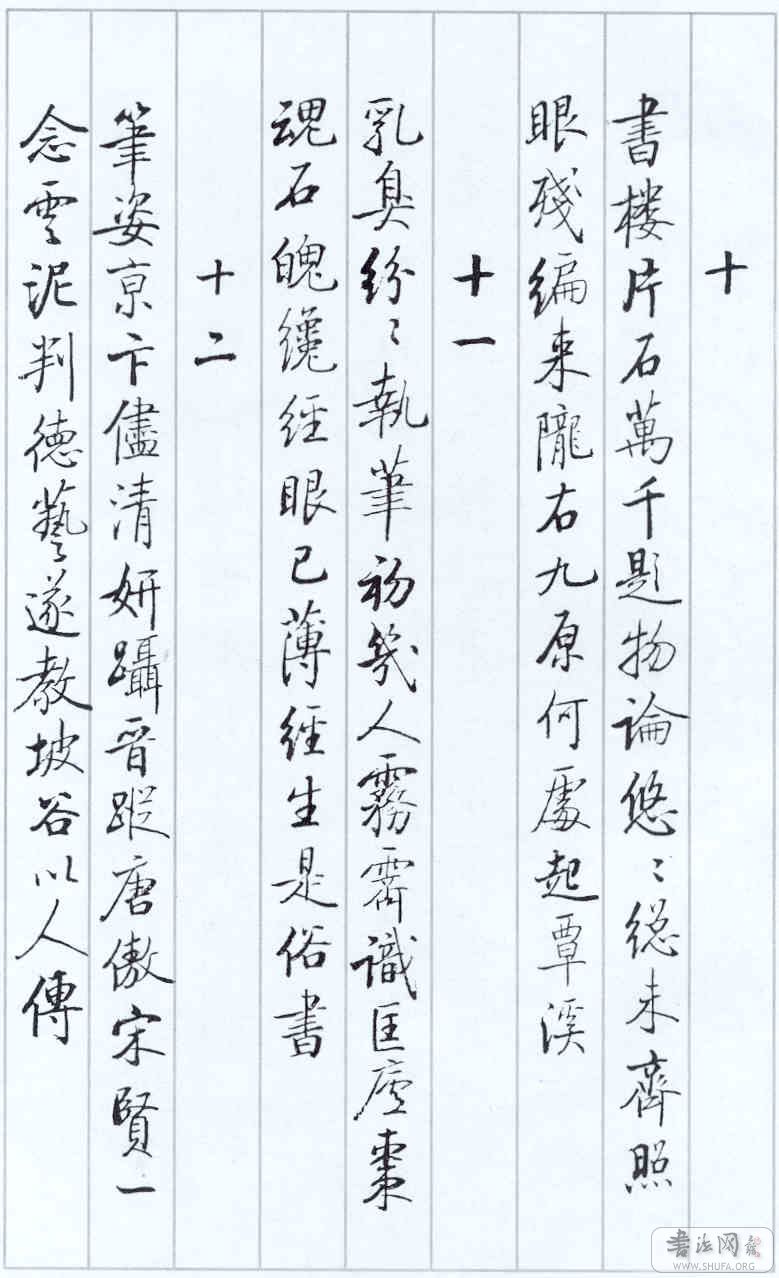 十
書樓片石萬千題物論悠〻總未齊照
眼殘編来隴右九原何處起覃溪
十一
乳臭紛〻執筆初幾人霧霽識匡廬棗
魂石魄纔經眼已薄經生是俗書
十二
筆姿京卞儘清妍躡晉蹤唐傲宋賢一
念雲泥判德藝遂教坡谷以人傳
書法网
WWW.SHUFA.ORG